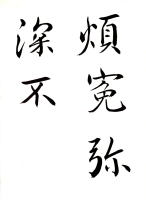 煩冤弥
深不